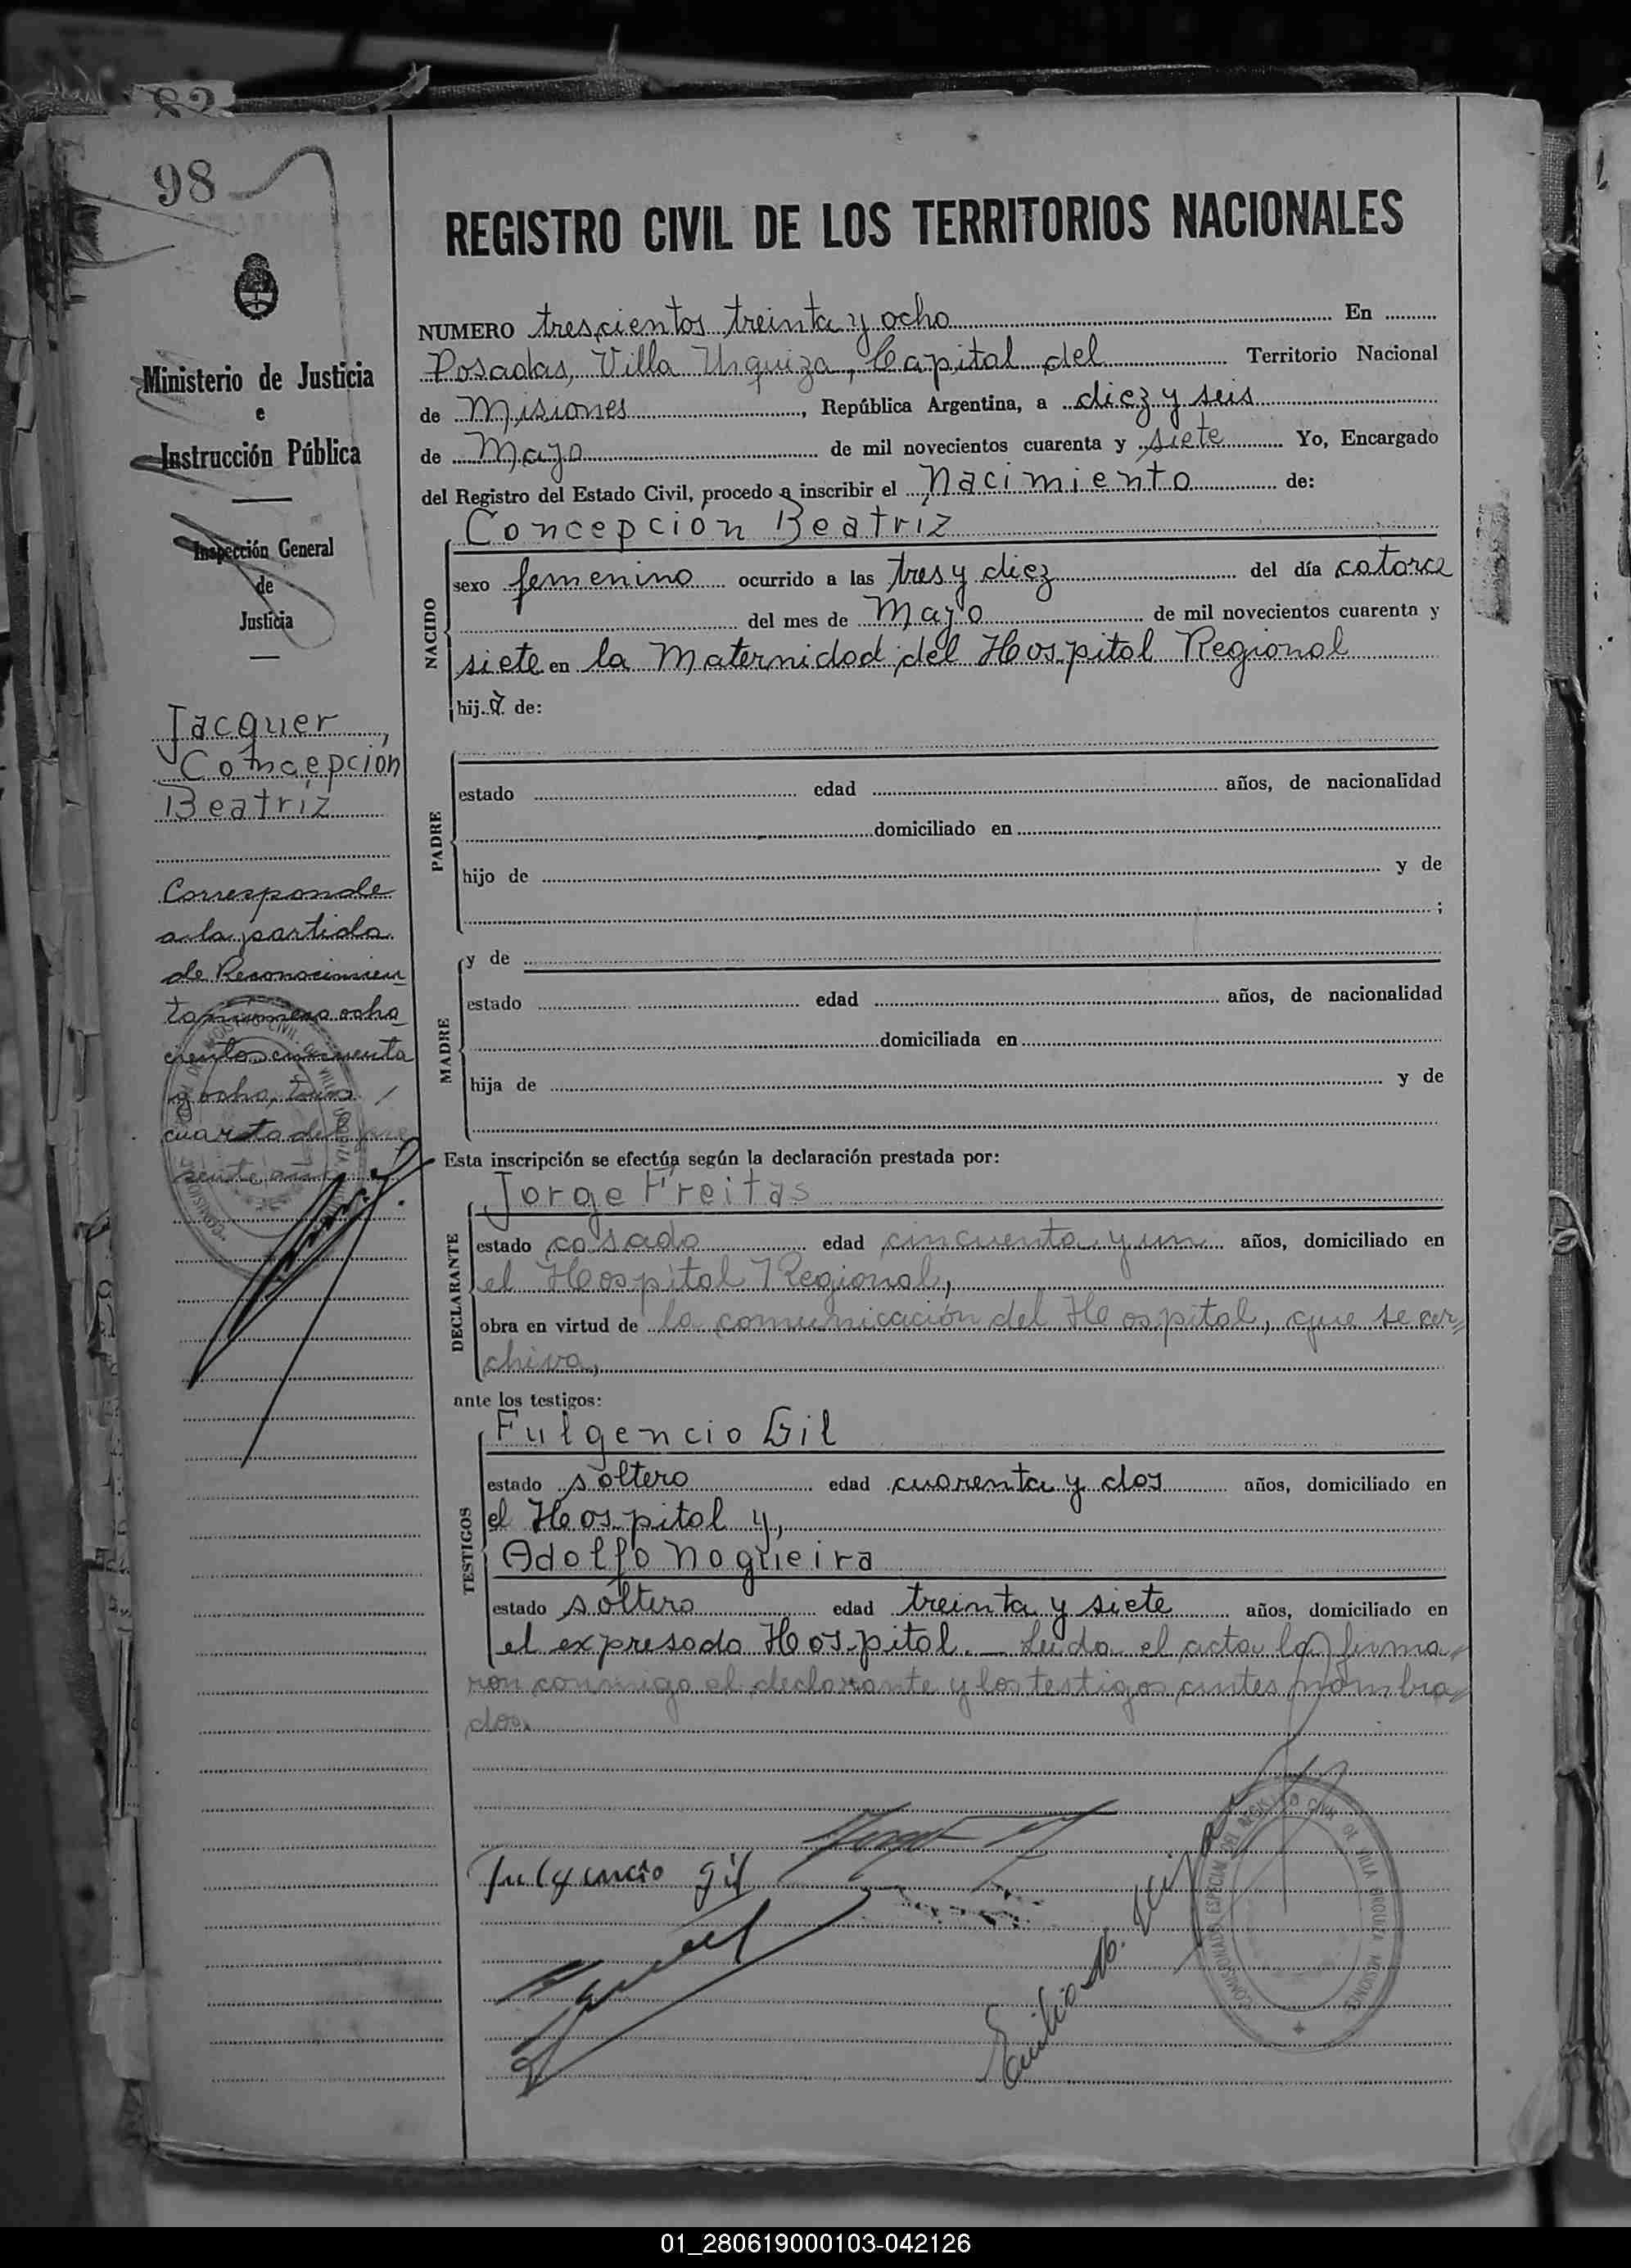 82
98
Ministerio de Justicia
e
Instrucción Pública
Inspección General
de
Justicia
Jacquer,
Concepción
Beatríz
Corresponde
a la partida
de Reconocimien
to número ocho
cientos cincuenta
y ocho, tomo
cuarto del pre
sente año
REGISTRO CIVIL DE LOS TERRITORIOS NACIONALES
NUMERO trescientos treinta y ocho En
Posadas, Villa Urquiza, Capital del Territorio Nacional
de Misiones, República Argentina, a diez y seis
de Mayo de mil novecientos cuarenta y siete Yo, Encargado
del Registro del Estado Civil, procedo a inscribir el Nacimiento de:
NACIDO
Concepción Beatríz
sexo femenino ocurrido a las tres y diez del día catorce
del mes de Mayo de mil novecientos cuarenta y
siete en la Maternidad del Hospital Regional
hija de:
PADRE
estado edad años, de nacionalidad
domiciliado en
hijo de y de
;
MADRE
y de
estado edad años, de nacionalidad
domiciliada en
hija de y de
Esta inscripción se efectúa según la declaración prestada por:
DECLARANTE
Jorge Freitas
estado casado edad cincuenta y un años, domiciliado en
el Hospital Regional,
obra en virtud de la comunicación del Hospital, que se ar=
chiva,
ante los testigos:
TESTIGOS
Fulgencio Gil
estado soltero edad cuarenta y dos años, domiciliado en
el Hospital y,
Adolfo Nogueira
estado soltero edad treinta y siete años, domiciliado en
el expresado Hospital. — Leída el acta la firma=
ron conmigo el declarante y los testigos antes nombra=
dos.
Fulgencio Gil
Emilio
COMISIONADO ESPECIAL DEL REGISTRO CIVIL DE VILLA URQUIZA MISIONES
01_280619000103-042126